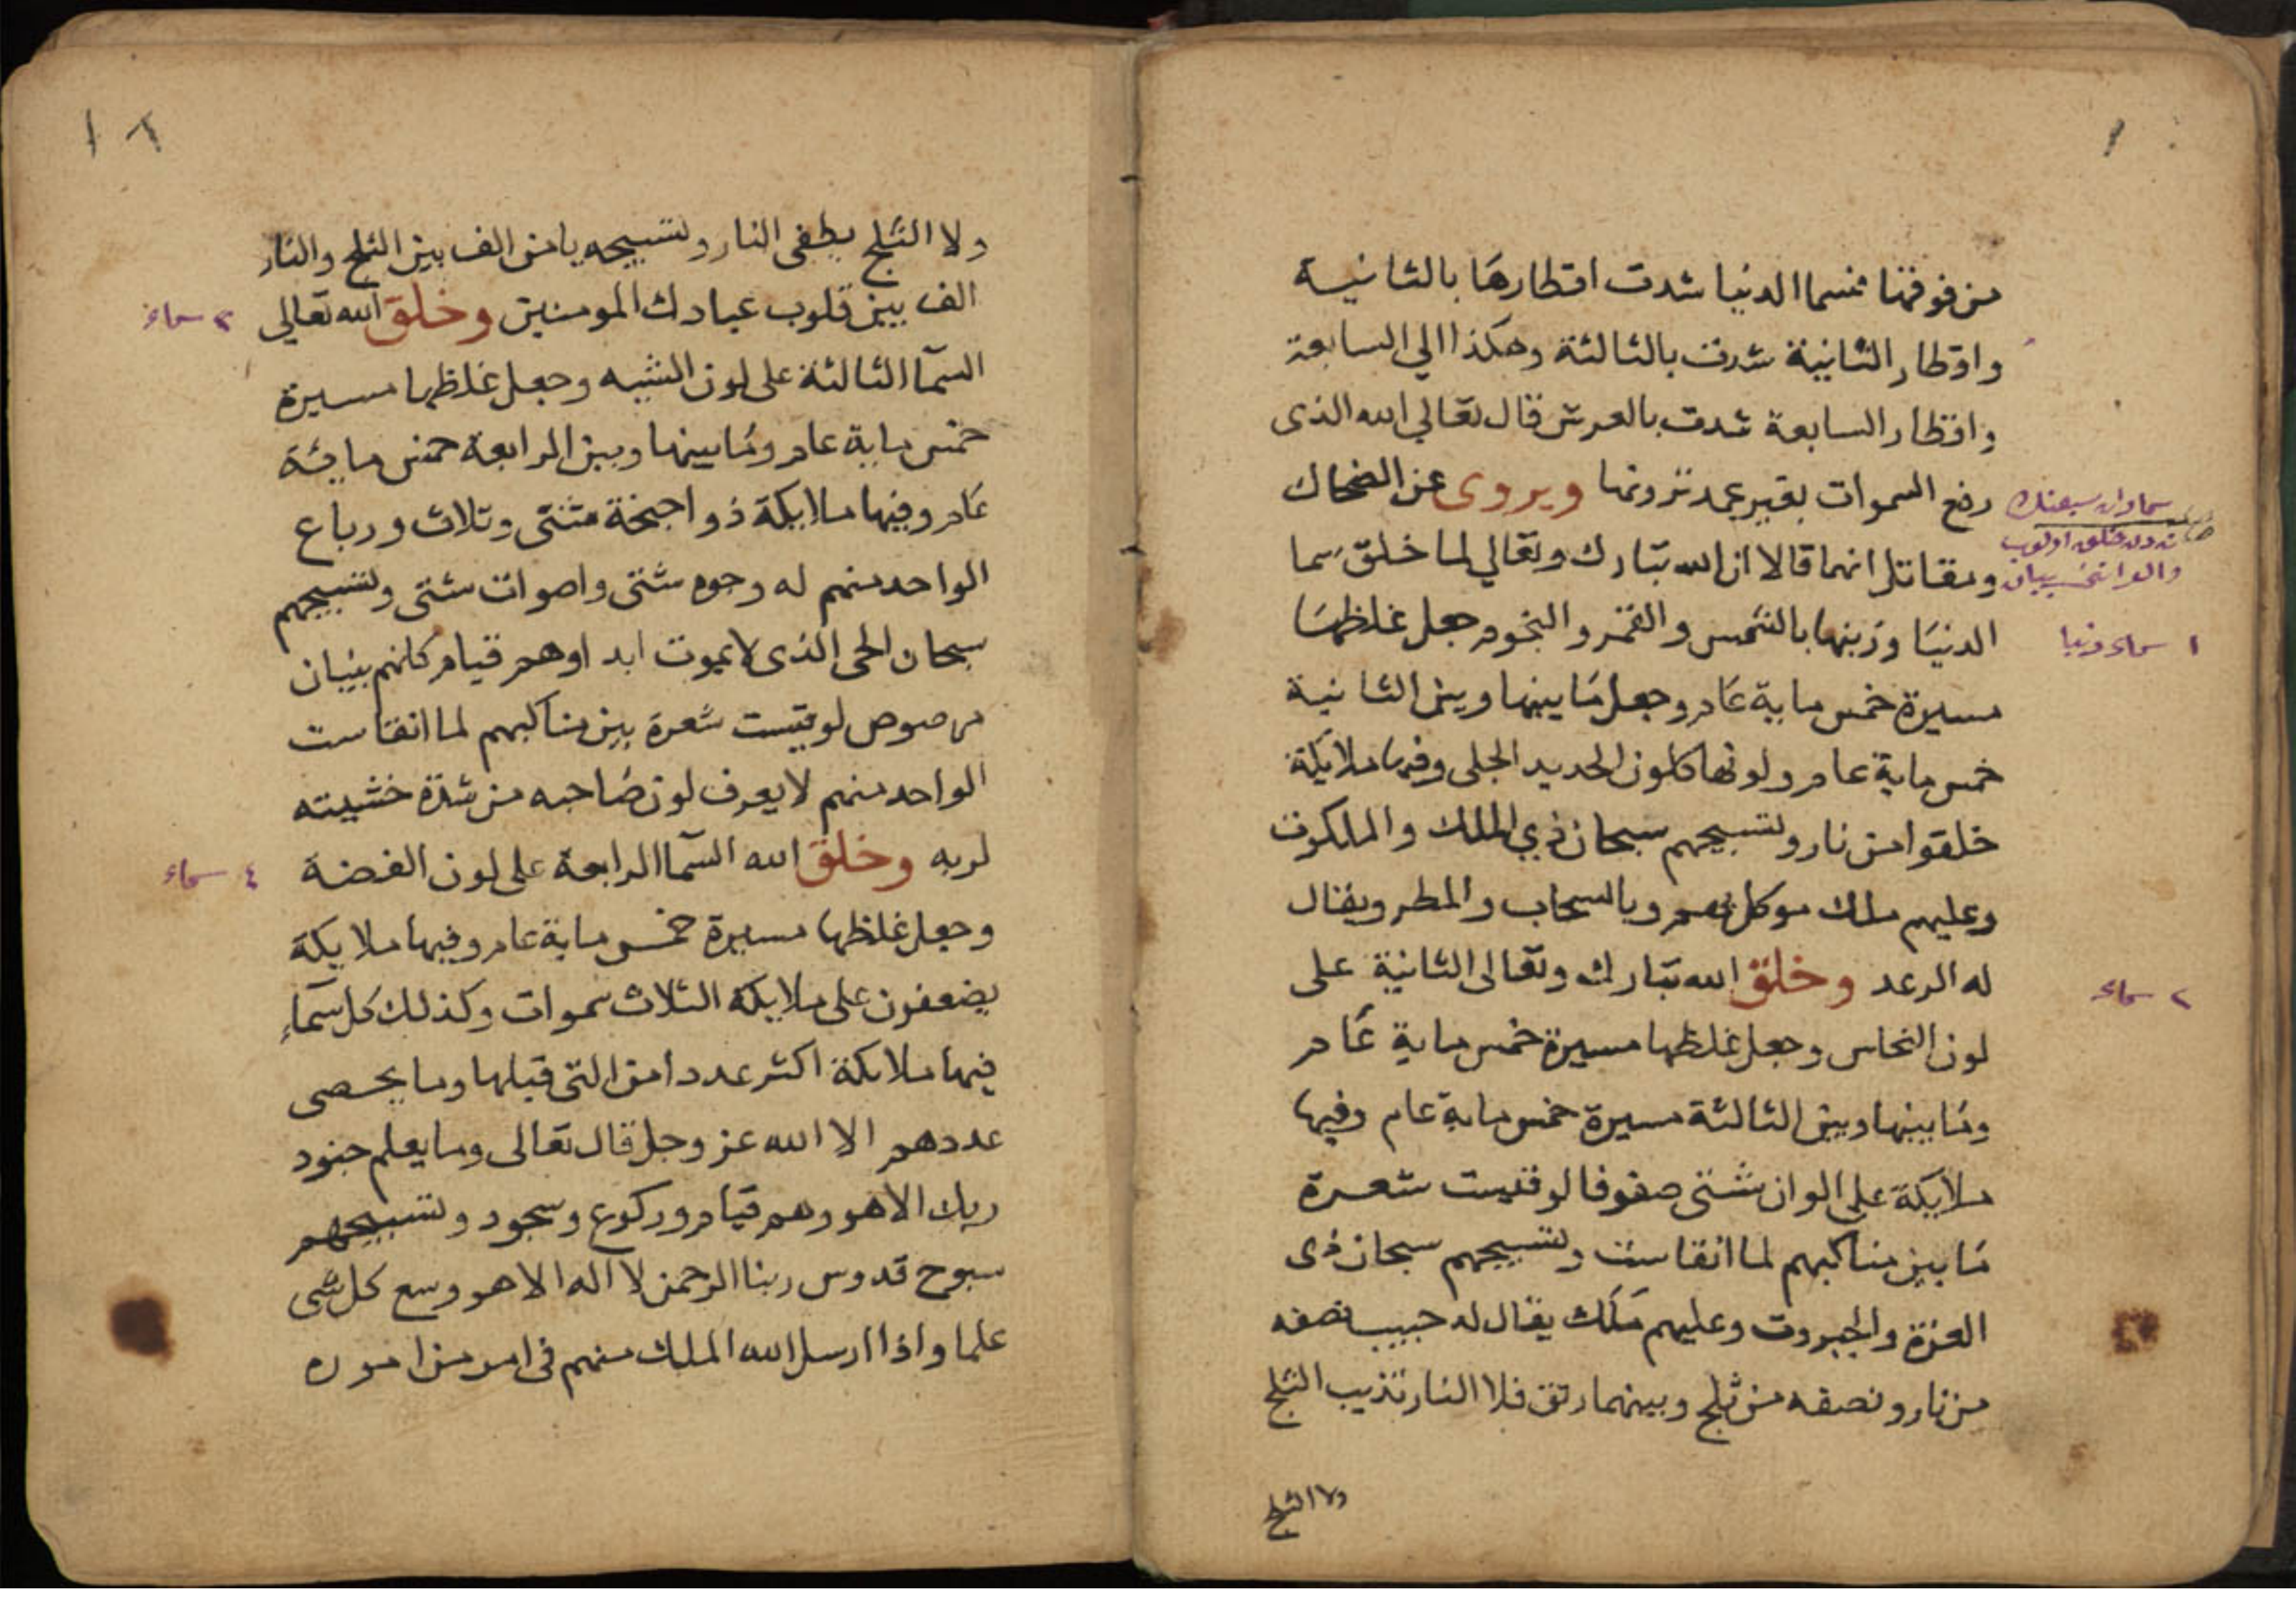 من فوقنا فسما الدنيا شدت اقطارها بالثانية
واقطار الثانية شدت بالثالثة وهكذا الي السابعة
واقطار السابعة شدت بالعرش قال تعالي الله الذى
رفع السموات بغير عمد ترونها ويروى عن الضحاك
ومقاتل انهما قالا ان الله تبارك وتعالي لما خلق سما
الدنيا وزينها بالشمس والقمر والنجوم جعل غلظها
مسيرة خمس ماية عام وجعل ما بينها وبين الثانية
خمس ماية عام ولونها كلون الحديد الجلى وفيها ملايكة
خلقوا من نار وتسبيحهم سبحان ذي الملك والملكوت
وعليهم ملك موكل بهم وبالسحاب والمطر ويقال
له الرعد وخلق الله تبارك وتعالى الثانية على
لون النحاس وجعل غلظها مسيرة خمس ماية عام
وما بينها وبين الثالثة مسيرة خمس ماية عام وفيها
ملايكة على الوان شتى صفوفا لو قيست شعرة
ما بين مناكبهم لما انقاست وتسبيحهم سبحان ذى
العزة والجبروت وعليهم ملك يقال له حبيب نصفه
من نار ونصفه من ثلج وبينهما رتق فلا النار تذيب الثلج
ولا الثلج
سماوات سبعنك
١ سماء دنيا
٢ سماء
١٢
ولا الثلج يطفى النار وتسبيحه يا من الف بين الثلج والنار
الف بين قلوب عبادك المومنين وخلق الله تعالي
السمآ الثالثة على لون الشبه وجعل غلظها مسيرة
خمس ماية عام وما بينها وبين الرابعة خمس مائة
عام وفيها ملايكة ذو اجنحة مثنى وثلاث ورباع
الواحد منهم له وجوه شتى واصوات شتى وتسبيحهم
سبحان الحى الذى لا يموت ابدا وهم قيام كانهم بنيان
مرصوص لو قيست شعرة بين مناكبهم لما انقاست
الواحد منهم لا يعرف لون صاحبه من شدة خشيته
لربه وخلق الله السمآ الرابعة على لون الفضة
وجعل غلظها مسيرة خمس ماية عام وفيها ملايكة
يضعفون على ملايكة الثلاث سموات وكذلك كل سمآء
فيها ملايكة اكثر عددا من التى قبلها وما يحصى
عددهم الا الله عز وجل قال تعالى وما يعلم جنود
ربك الا هو وهم قيام وركوع وسجود وتسبيحهم
سبوح قدوس ربنا الرحمن لا اله الا هو وسع كل شى
علما واذا ارسل الله الملك منهم فى امر من اموره
٣ سماء
٤ سماء